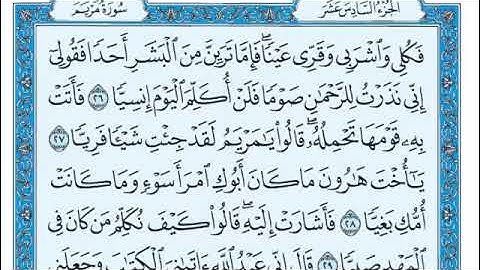 الجزء السادس عشر
سورة مريم
فَكُلِي وَٱشْرَبِي وَقَرِّي عَيْنٗاۖ فَإِمَّا تَرَيِنَّ مِنَ ٱلْبَشَرِ أَحَدٗا فَقُولِيٓ
إِنِّي نَذَرْتُ لِلرَّحْمَٰنِ صَوْمٗا فَلَنْ أُكَلِّمَ ٱلْيَوْمَ إِنسِيّٗا ٢٦ فَأَتَتْ
بِهِۦ قَوْمَهَا تَحْمِلُهُۥۖ قَالُواْ يَٰمَرْيَمُ لَقَدْ جِئْتِ شَيْـٔٗا فَرِيّٗا ٢٧
يَٰٓأُخْتَ هَٰرُونَ مَا كَانَ أَبُوكِ ٱمْرَأَ سَوْءٖ وَمَا كَانَتْ
أُمُّكِ بَغِيّٗا ٢٨ فَأَشَارَتْ إِلَيْهِۖ قَالُواْ كَيْفَ نُكَلِّمُ مَن كَانَ فِي
ٱلْمَهْدِ صَبِيّٗا ٢٩ قَالَ إِنِّي عَبْدُ ٱللَّهِ ءَاتَىٰنِيَ ٱلْكِتَٰبَ وَجَعَلَنِي